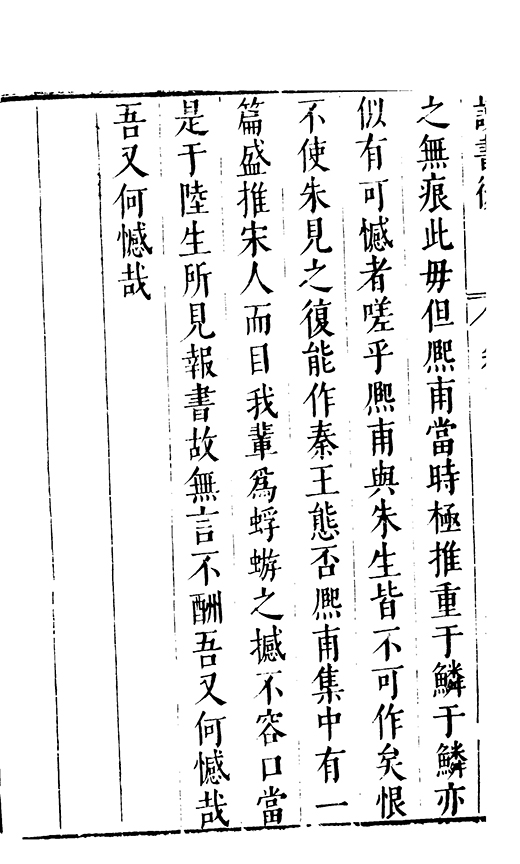 讀書後
之無痕此毋但熈甫當時極推重于鱗于鱗亦
似有可憾者嗟乎熈甫與朱生皆不可作矣恨
不使朱見之復能作秦王態否熈甫集中有一
篇盛推宋人而目我輩為蜉蝣之撼不容口當
是于陸生所見報書故無言不酬吾又何憾哉
吾又何憾哉